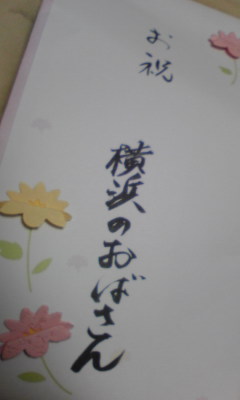 お祝
横浜のおばさん